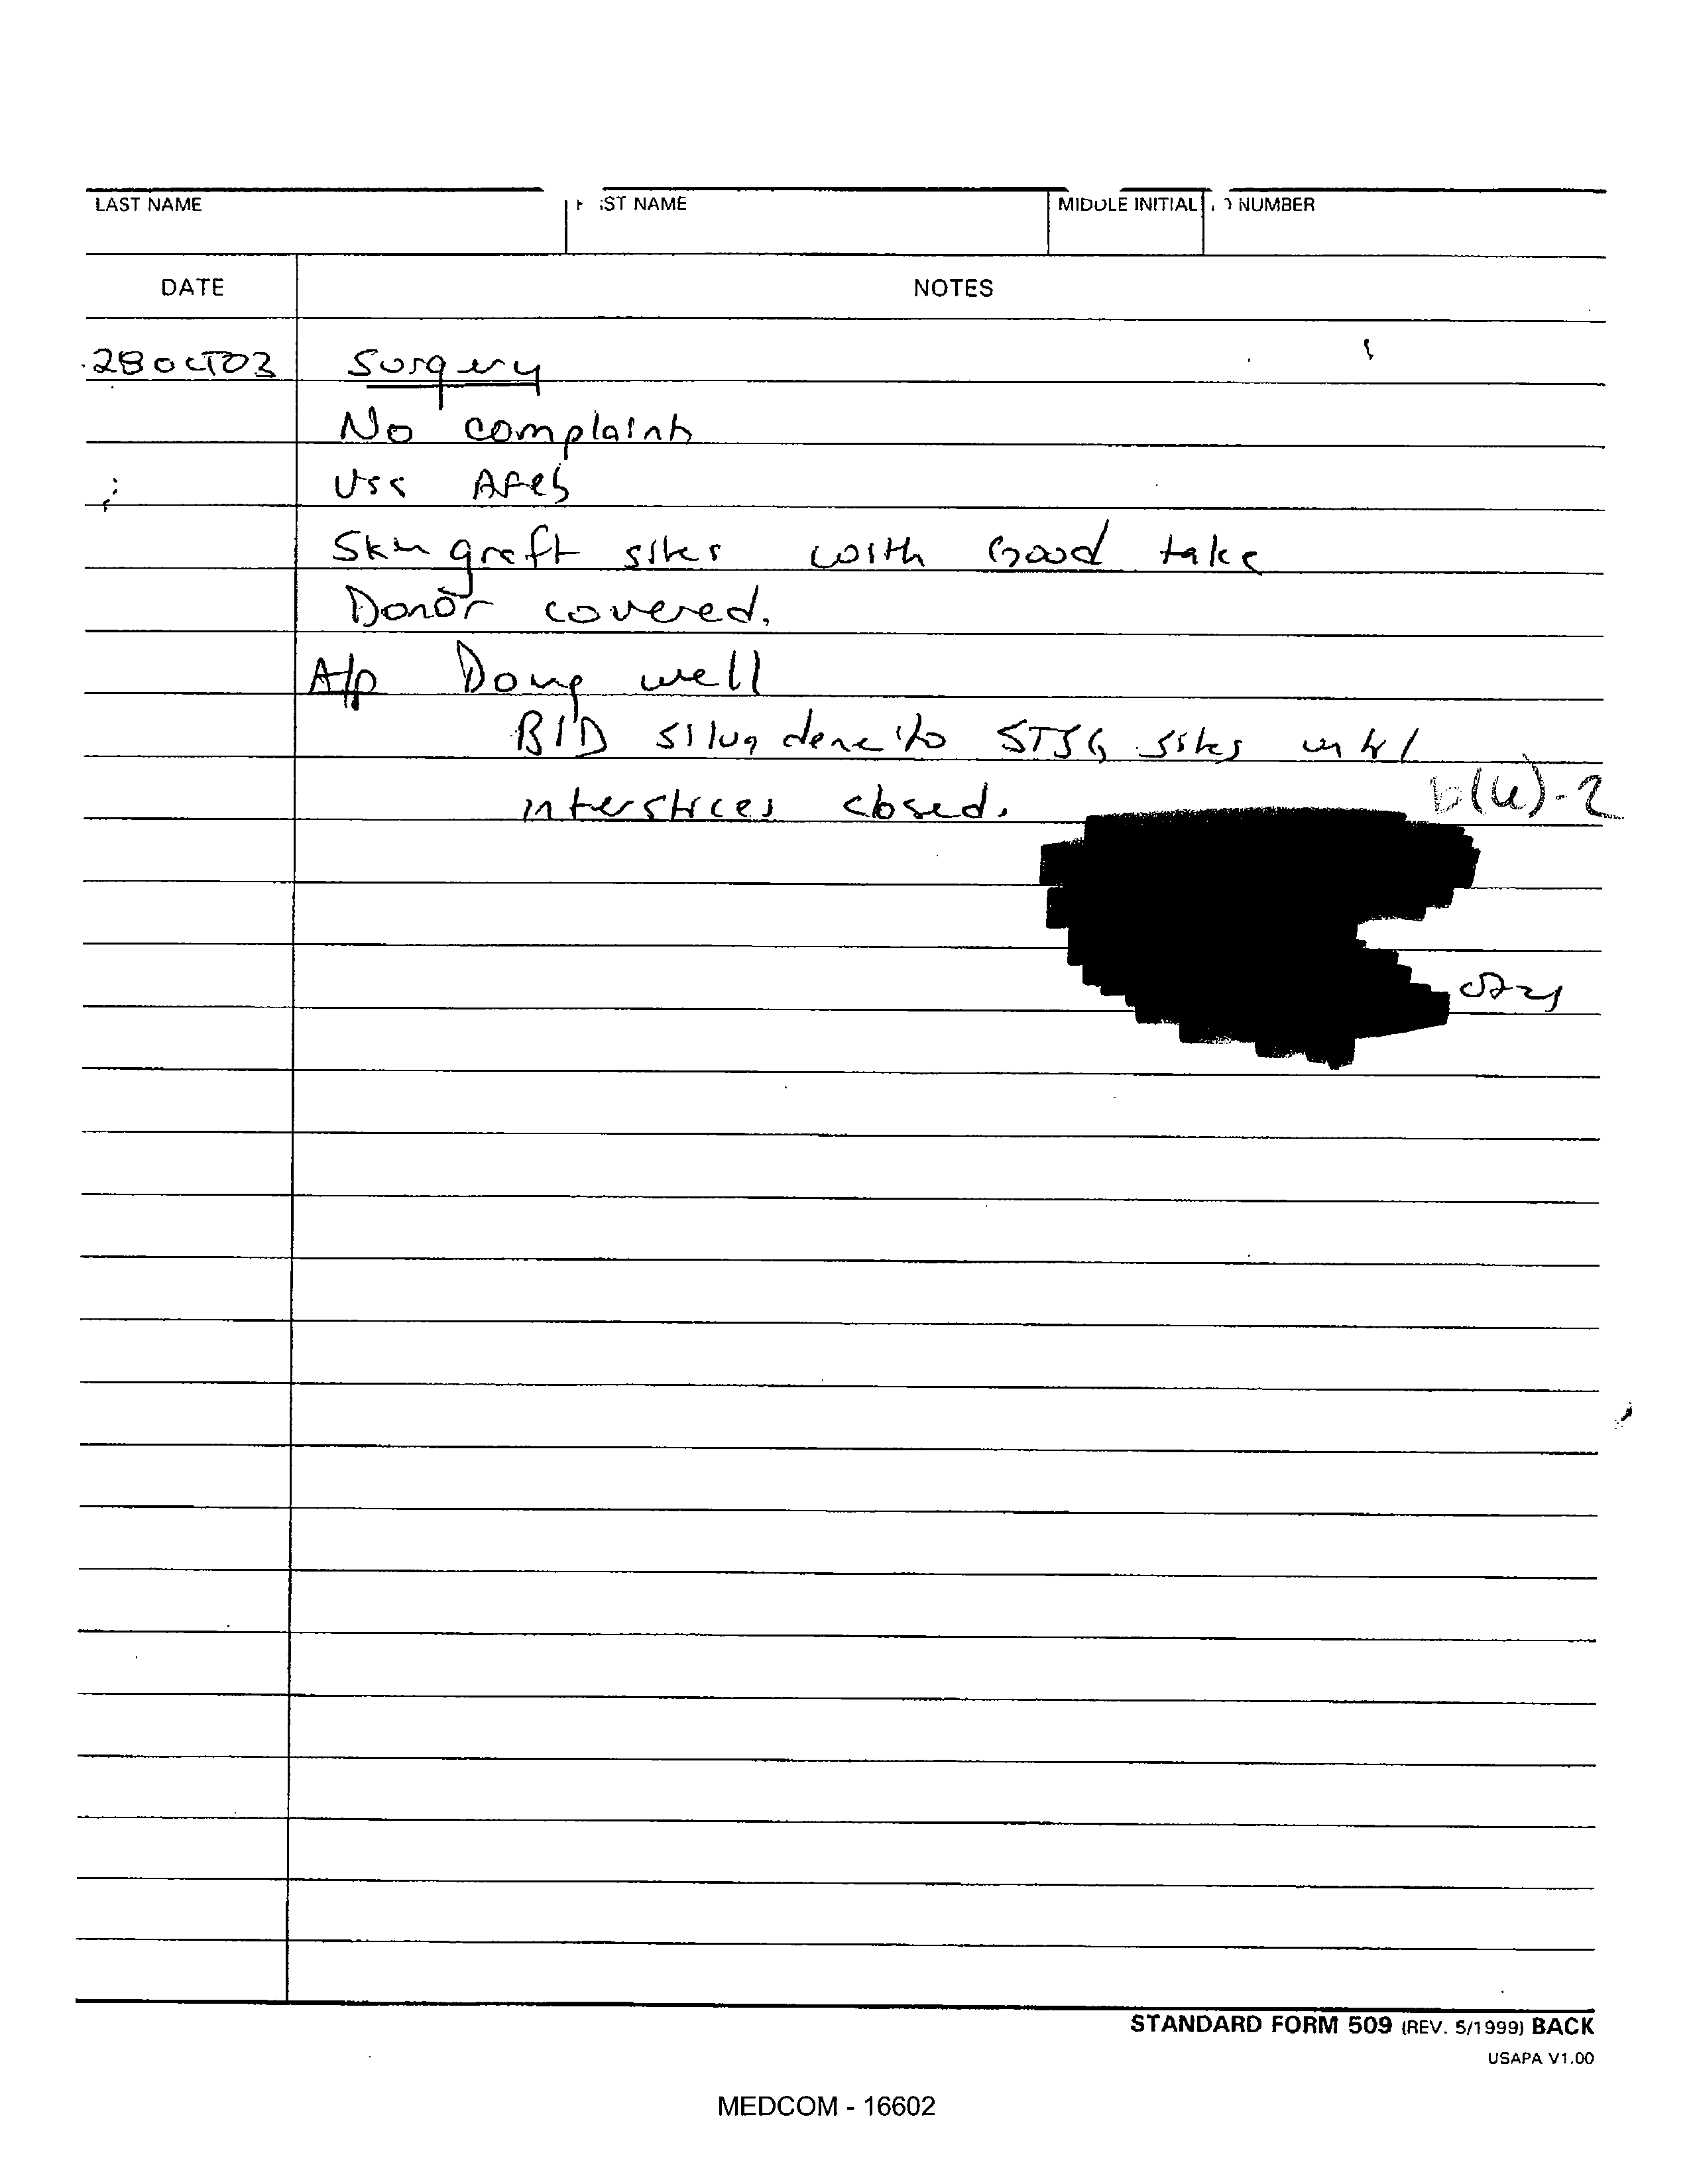 LAST NAME ST NAME MIDDLE INITIAL NUMBER
DATE NOTES
28 OCT 03 Surgery
No complaints
VSS AFeb
Skin graft sites with Good take
Donor covered.
A/p Doing well
BID silvadene to STSG sites until
b(6)-2
interstices closed.
STANDARD FORM 509 (REV. 5/1999) BACK
USAPA V1.00
MEDCOM - 16602